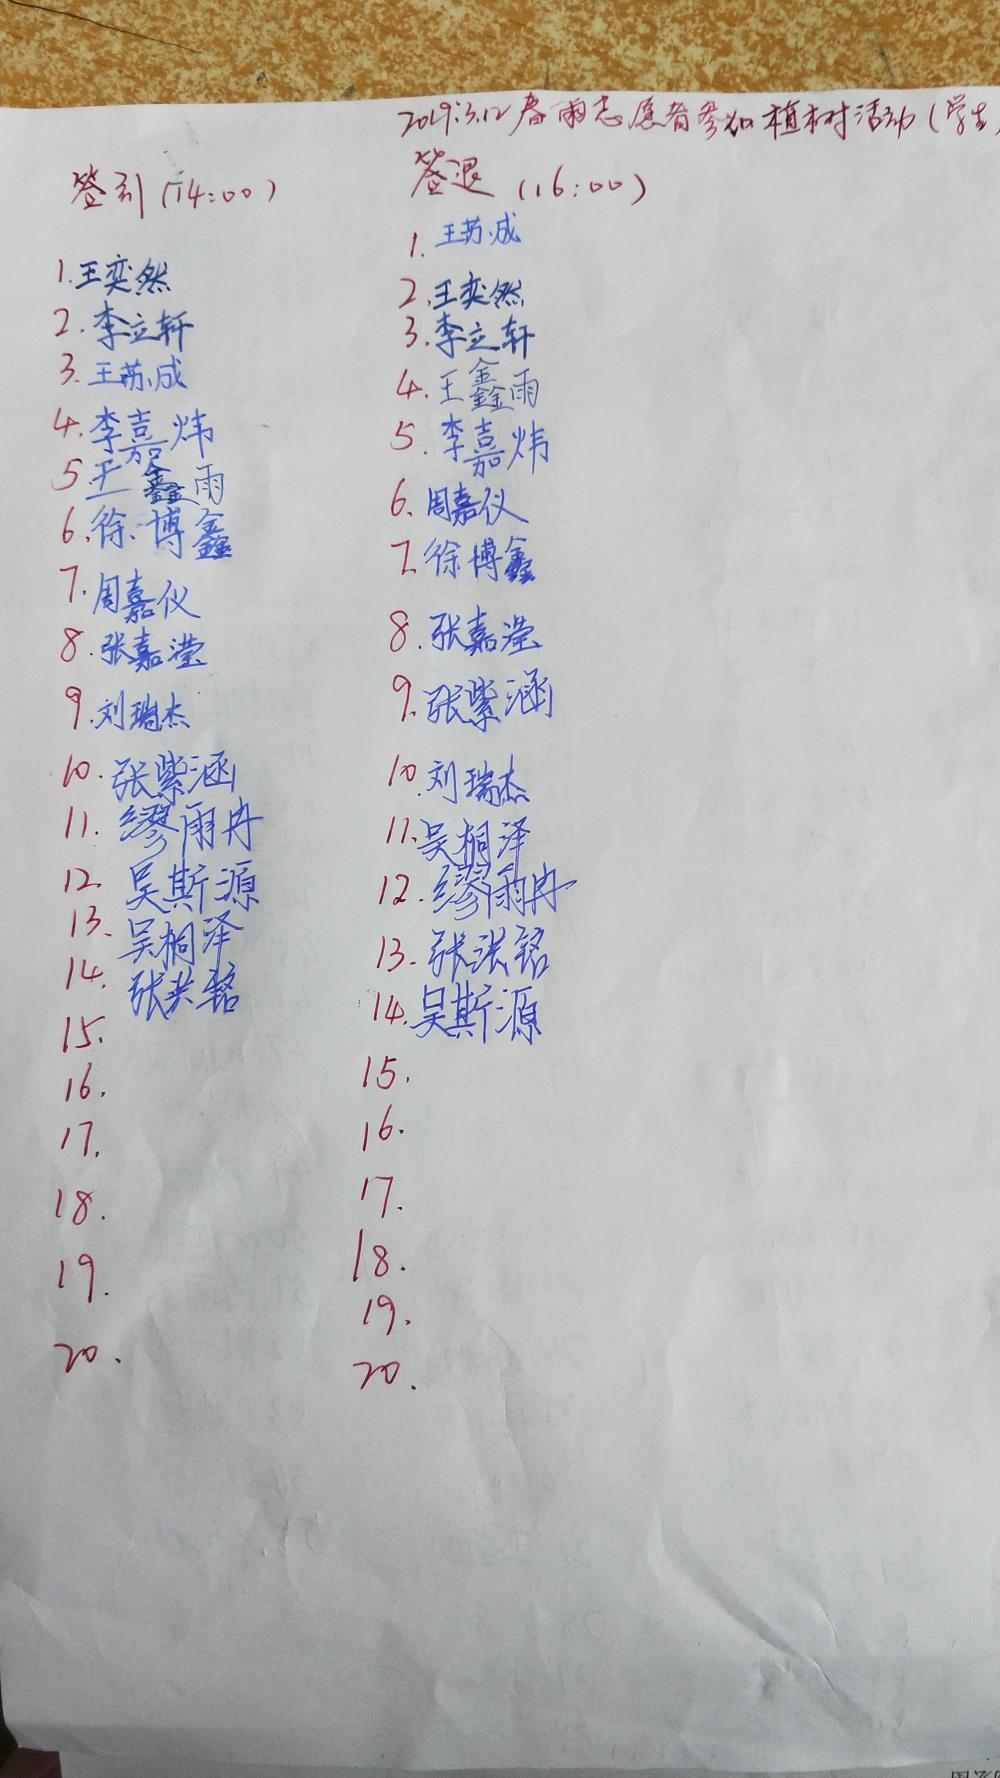 2019.3.12春雨志愿者参加植树活动(学生
签到(14:00)
1.王奕然
2.李立轩
3.王苏成
4.李嘉炜
5.王鑫雨
6.徐博鑫
7.周嘉仪
8.张嘉滢
9.刘瑞杰
10.张紫涵
11.缪雨冉
12.吴斯源
13.吴桐泽
14.张洪铭
15.
16.
17.
18.
19.
20.
签退(16:00)
1.王苏成
2.王奕然
3.李立轩
4.王鑫雨
5.李嘉炜
6.周嘉仪
7.徐博鑫
8.张嘉滢
9.张紫涵
10.刘瑞杰
11.吴桐泽
12.缪雨冉
13.张洪铭
14.吴斯源
15.
16.
17.
18.
19.
20.